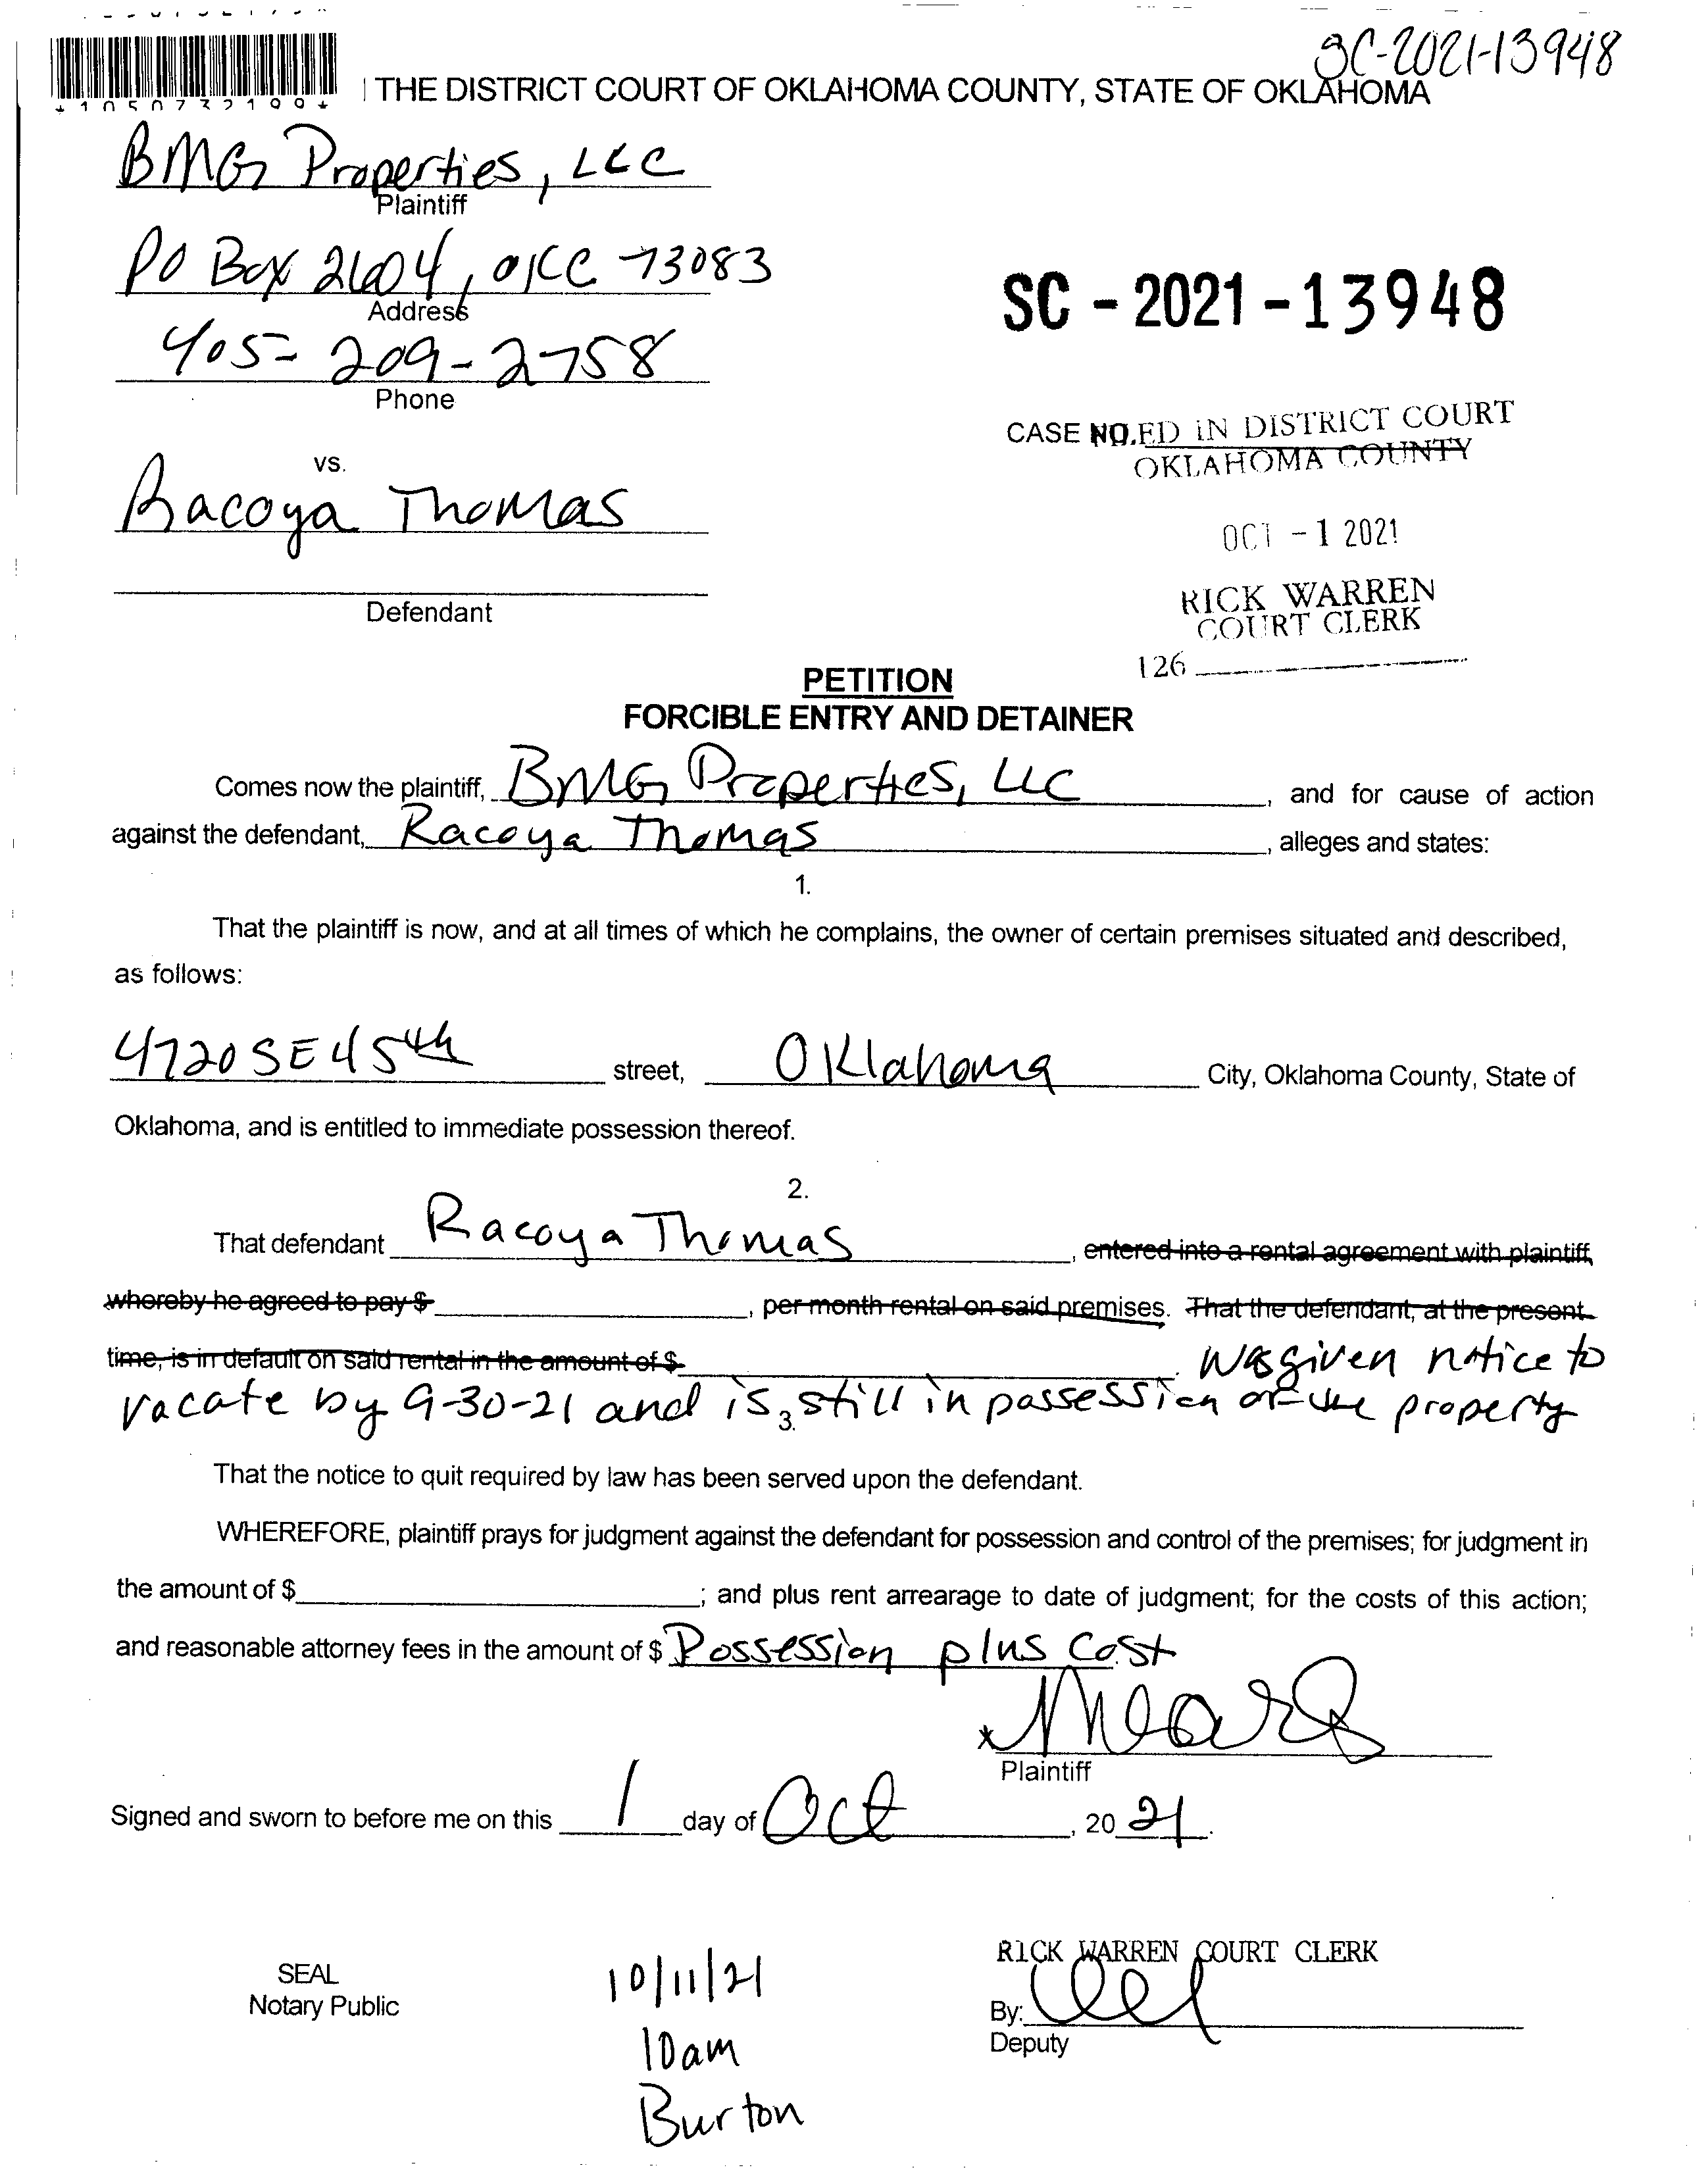 SC-2021-13948
THE DISTRICT COURT OF OKLAHOMA COUNTY, STATE OF OKLAHOMA
*1050732199*
BMG Properties, LLC
Plaintiff
PO Box 2604, OKC 73083
Address
SC - 2021 - 13948
405-209-2758
Phone
CASE NO.ED IN DISTRICT COURT
OKLAHOMA COUNTY
vs.
Racoya Thomas
OCT - 1 2021
Defendant
RICK WARREN
COURT CLERK
126
PETITION
FORCIBLE ENTRY AND DETAINER
Comes now the plaintiff, BMG Properties, LLC, and for cause of action
against the defendant, Racoya Thomas, alleges and states:
1.
That the plaintiff is now, and at all times of which he complains, the owner of certain premises situated and described,
as follows:
4720 SE 45th street, Oklahoma City, Oklahoma County, State of
Oklahoma, and is entitled to immediate possession thereof.
2.
That defendant Racoya Thomas, entered into a rental agreement with plaintiff,
whereby he agreed to pay $, per month rental on said premises. That the defendant, at the present
time, is in default on said rental in the amount of $. was given notice to
vacate by 9-30-21 and is still in possession of the property
3.
That the notice to quit required by law has been served upon the defendant.
WHEREFORE, plaintiff prays for judgment against the defendant for possession and control of the premises; for judgment in
the amount of $; and plus rent arrearage to date of judgment; for the costs of this action;
and reasonable attorney fees in the amount of $ Possession plus cost
x
Plaintiff
Signed and sworn to before me on this 1 day of Oct, 20 21.
RICK WARREN COURT CLERK
SEAL
Notary Public
10/11/21
By:
Deputy
10am
Burton